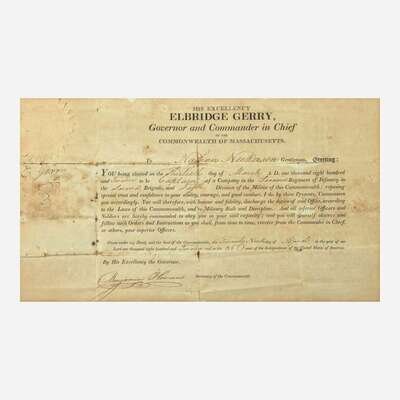 HIS EXCELLENCY
ELBRIDGE GERRY,
Governor and Commander in Chief
OF THE
COMMONWEALTH OF MASSACHUSETTS.
To Gentleman, Greeting:
YOU being elected on the day of March A.D. one thousand eight hundred
and to be of a Company in the Second Regiment of Infantry in
the Second Brigade, and Division of the Militia of this Commonwealth; reposing
special trust and confidence in your ability, courage and good conduct, I do by these Presents, Commission
you accordingly. You will therefore, with honour and fidelity, discharge the duties of said Office, according
to the Laws of this Commonwealth, and to Military Rule and Discipline. And all inferior Officers and
Soldiers are hereby commanded to obey you in your said capacity; and you will yourself observe and
follow such Orders and Instructions as you shall, from time to time, receive from the Commander in Chief,
or others, your superior Officers.
Given under my Hand, and the Seal of the Commonwealth, the day of in the year of our
Lord one thousand eight hundred and and in the year of the Independence of the United States of America.
By His Excellency the Governor,
Benjamin Homans
Secretary of the Commonwealth.
Gerry